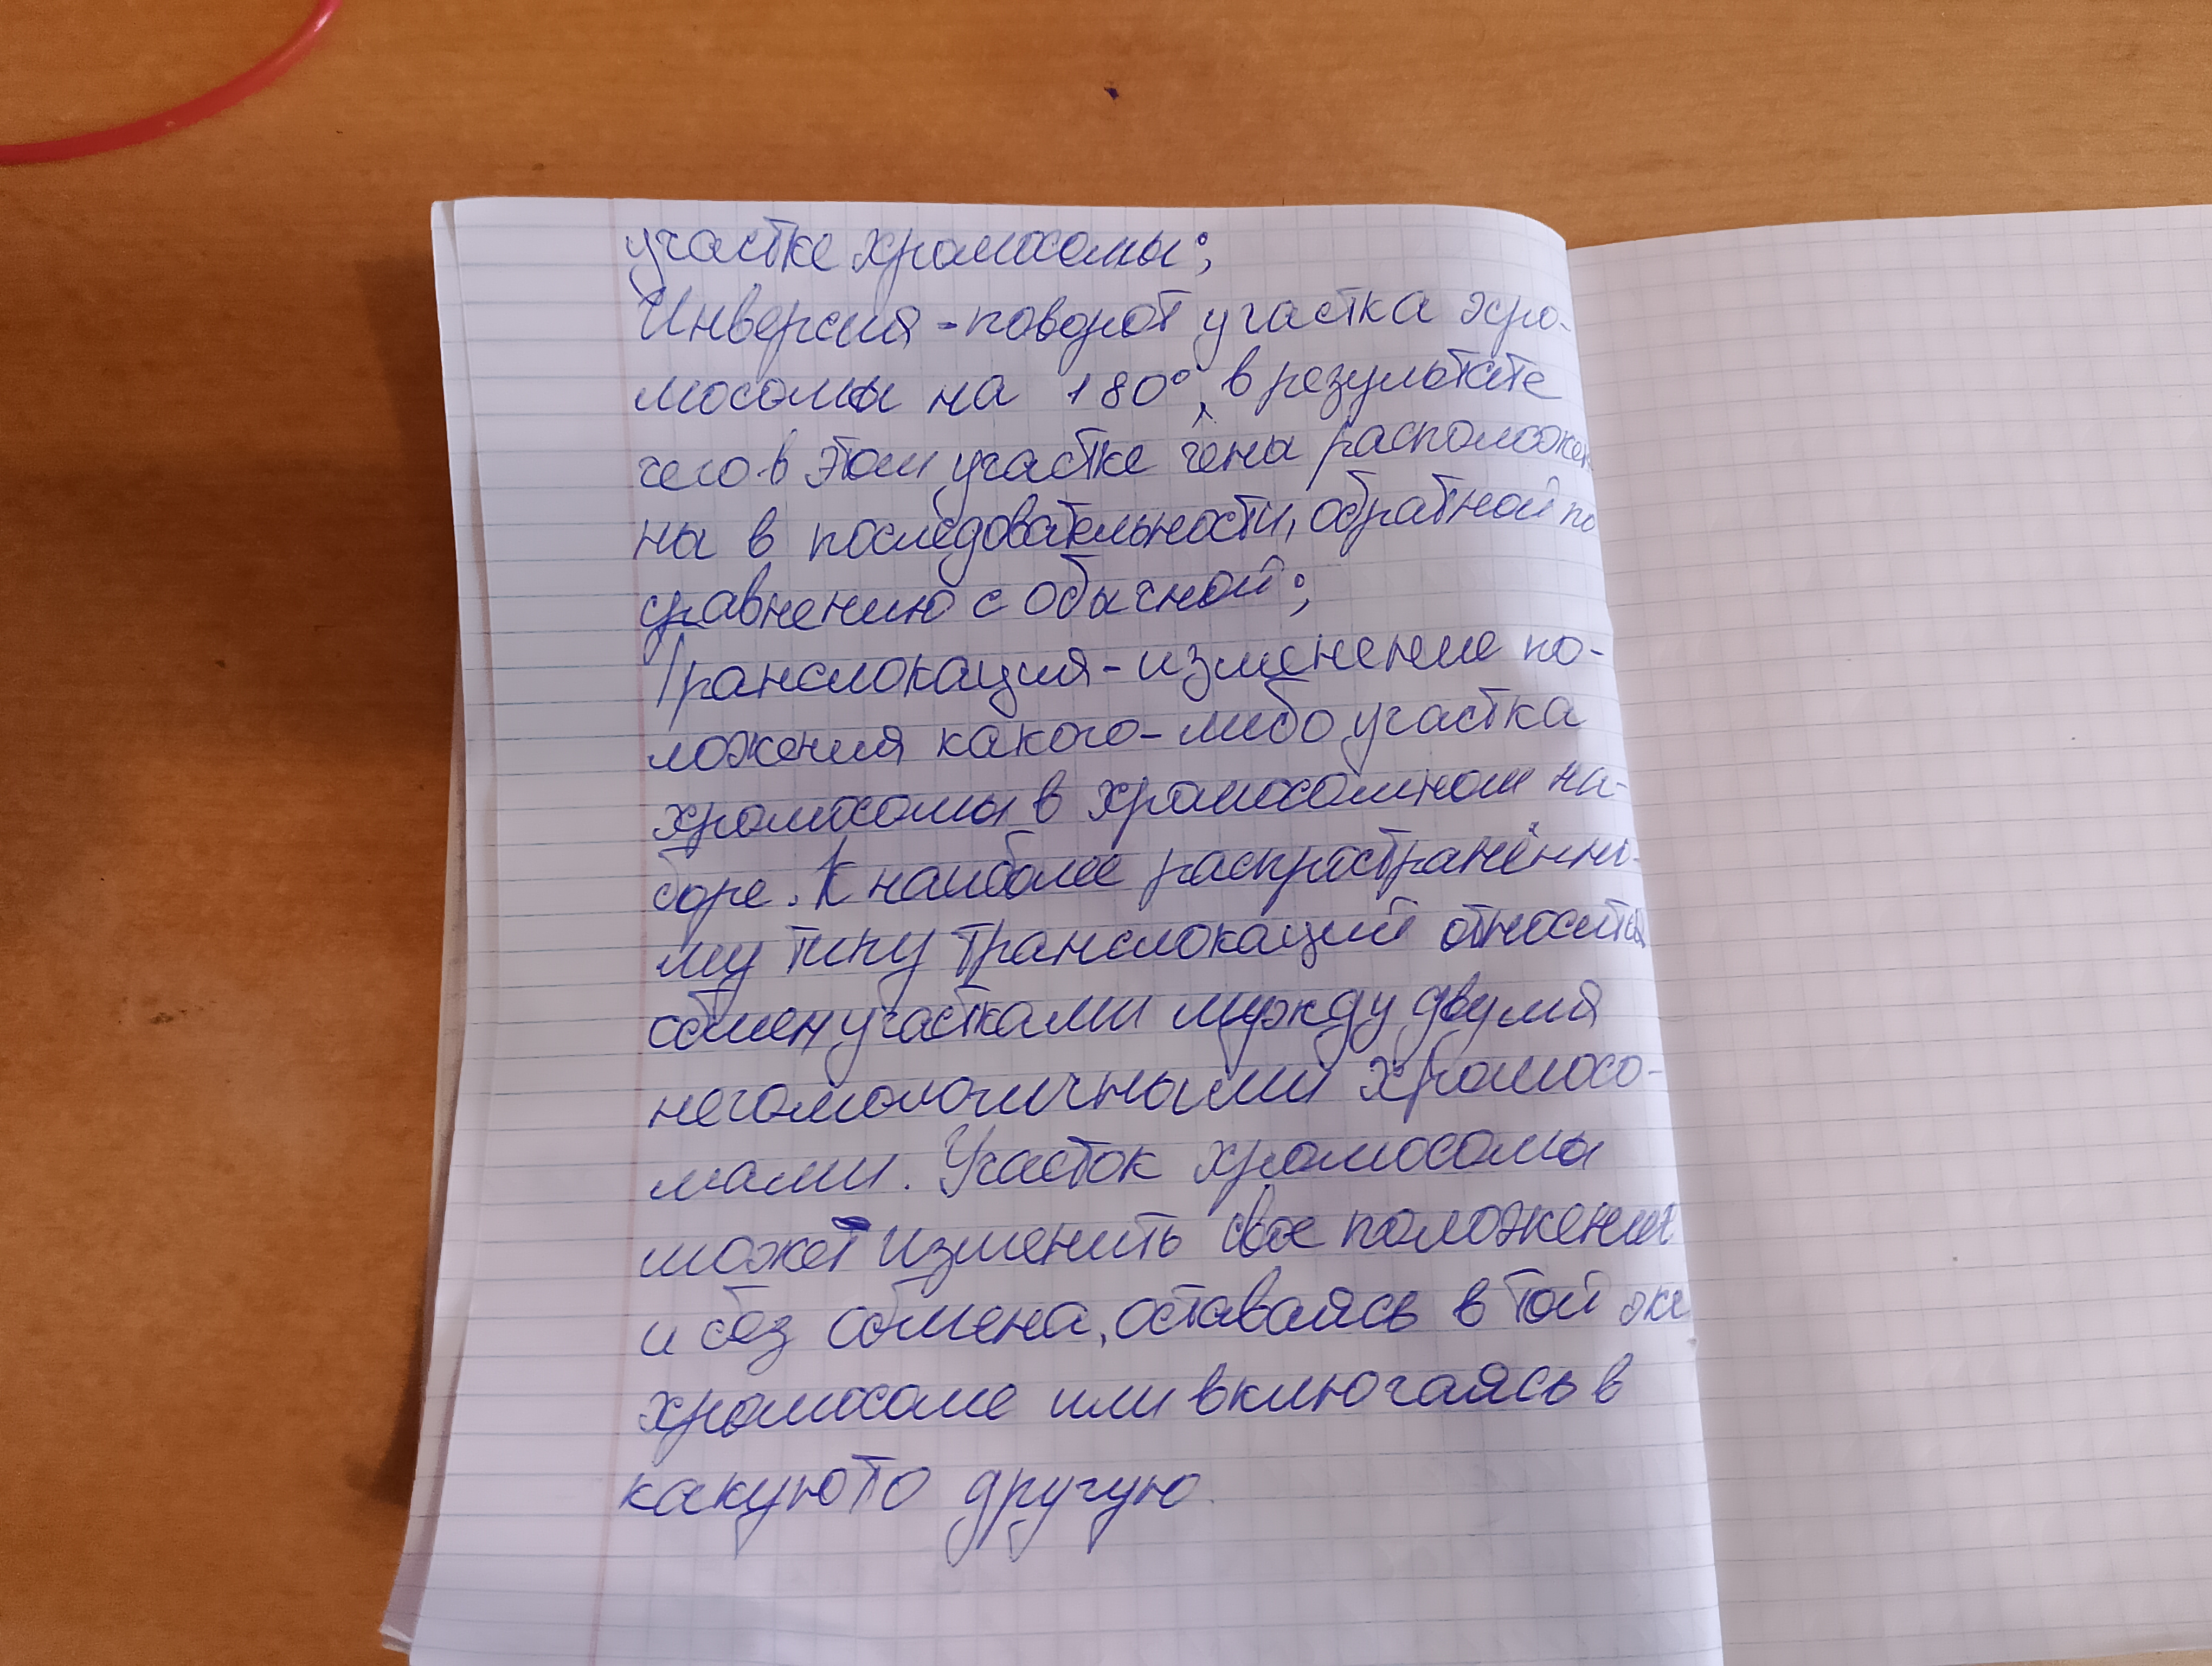 участке хромосомы;
Инверсия - поворот участка хро-
мосомы на 180°, в результате
чего в этом участке гена расположен
ны в последовательности, обратной по
сравнению с обычной;
Транслокация - изменение по-
ложения какого-либо участка
хромосомы в хромосомном на-
боре. К наиболее распространённо-
му типу транслокаций относится
обмен участками между двумя
негомологичными хромосо-
мами. Участок хромосомы
может изменить свое положение
и без обмена, оставаясь в той же
хромосоме или включаясь в
какуюто другую.